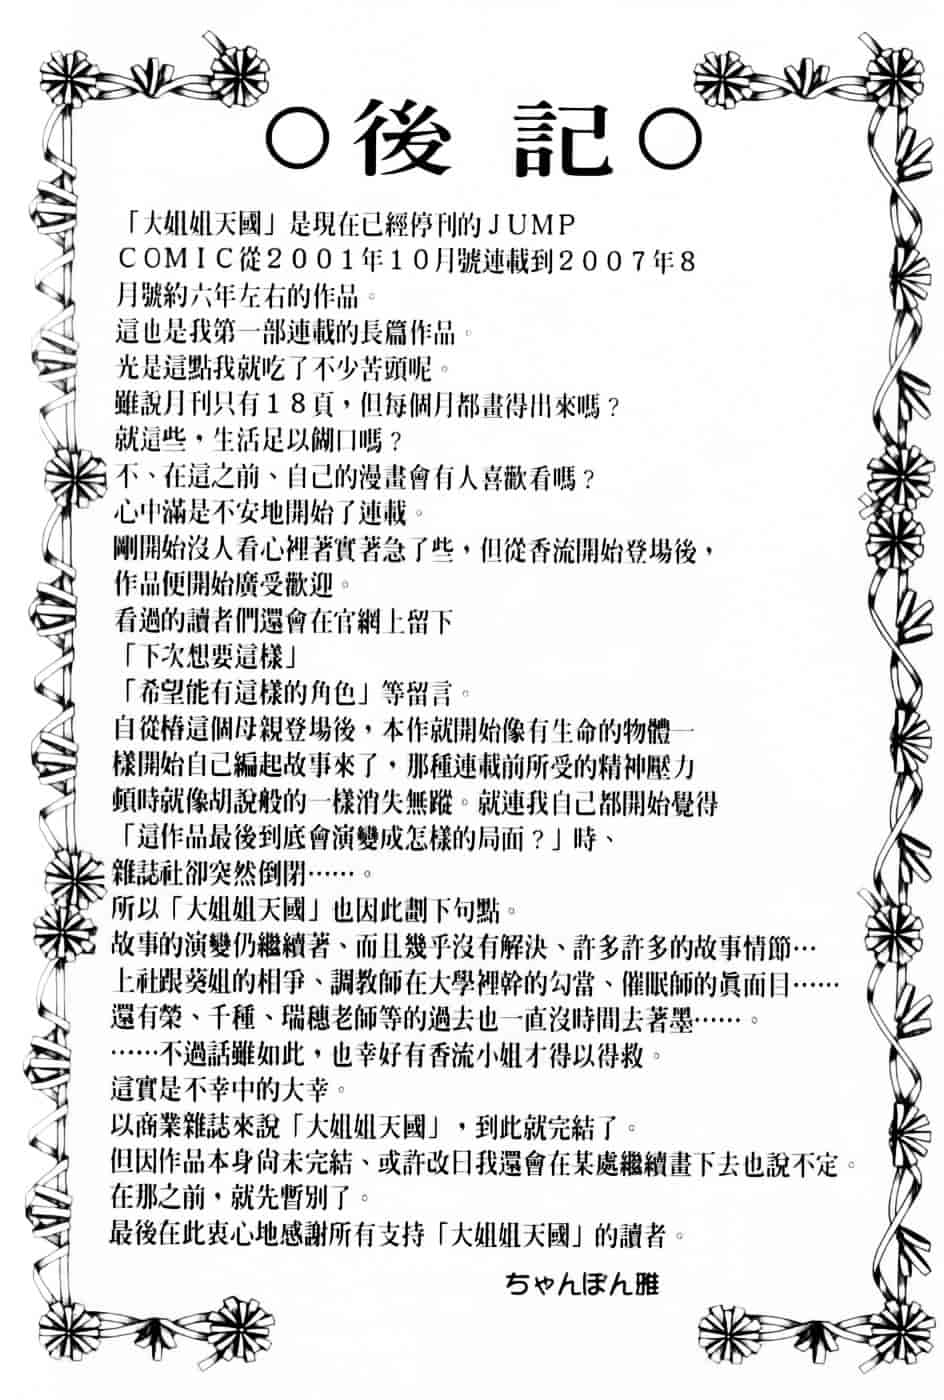 ○後記○
「大姐姐天國」是現在已經停刊的ＪＵＭＰ
ＣＯＭＩＣ從２００１年１０月號連載到２００７年８
月號約六年左右的作品。
這也是我第一部連載的長篇作品。
光是這點我就吃了不少苦頭呢。
雖說月刊只有１８頁，但每個月都畫得出來嗎？
就這些，生活足以餬口嗎？
不、在這之前、自己的漫畫會有人喜歡看嗎？
心中滿是不安地開始了連載。
剛開始沒人看心裡著實著急了些，但從香流開始登場後，
作品便開始廣受歡迎。
看過的讀者們還會在官網上留下
「下次想要這樣」
「希望能有這樣的角色」等留言。
自從椿這個母親登場後，本作就開始像有生命的物體一
樣開始自己編起故事來了，那種連載前所受的精神壓力
頓時就像胡說般的一樣消失無蹤。就連我自己都開始覺得
「這作品最後到底會演變成怎樣的局面？」時、
雜誌社卻突然倒閉……。
所以「大姐姐天國」也因此劃下句點。
故事的演變仍繼續著、而且幾乎沒有解決、許多許多的故事情節…
上社跟葵姐的相爭、調教師在大學裡幹的勾當、催眠師的眞面目……
還有榮、千種、瑞穗老師等的過去也一直沒時間去著墨……。
……不過話雖如此，也幸好有香流小姐才得以得救。
這實是不幸中的大幸。
以商業雜誌來說「大姐姐天國」，到此就完結了。
但因作品本身尙未完結、或許改日我還會在某處繼續畫下去也說不定。
在那之前，就先暫別了。
最後在此衷心地感謝所有支持「大姐姐天國」的讀者。
ちゃんぽん雅